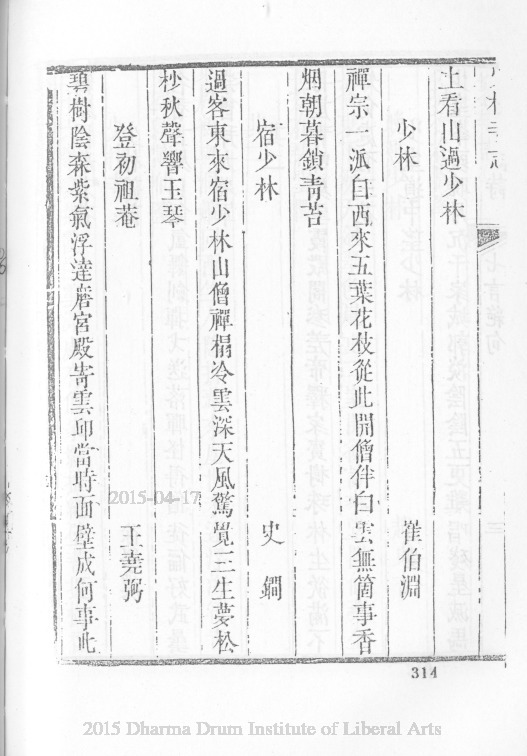 上看山過少林
少林 崔伯淵
禪宗一派自西來五葉花枝從此開僧伴白雲無箇事香
烟朝暮鎖青苔
宿少林 史鐧
過客東來宿少林山僧禪榻冷雲深天風驚覺三生夢松
杪秋聲響玉琴
登初祖菴 王堯弼
碧樹陰森紫氣浮達磨宮殿寄雲邱當時面壁成何事此
2015-04-17
314
2015 Dharma Drum Institute of Liberal Arts